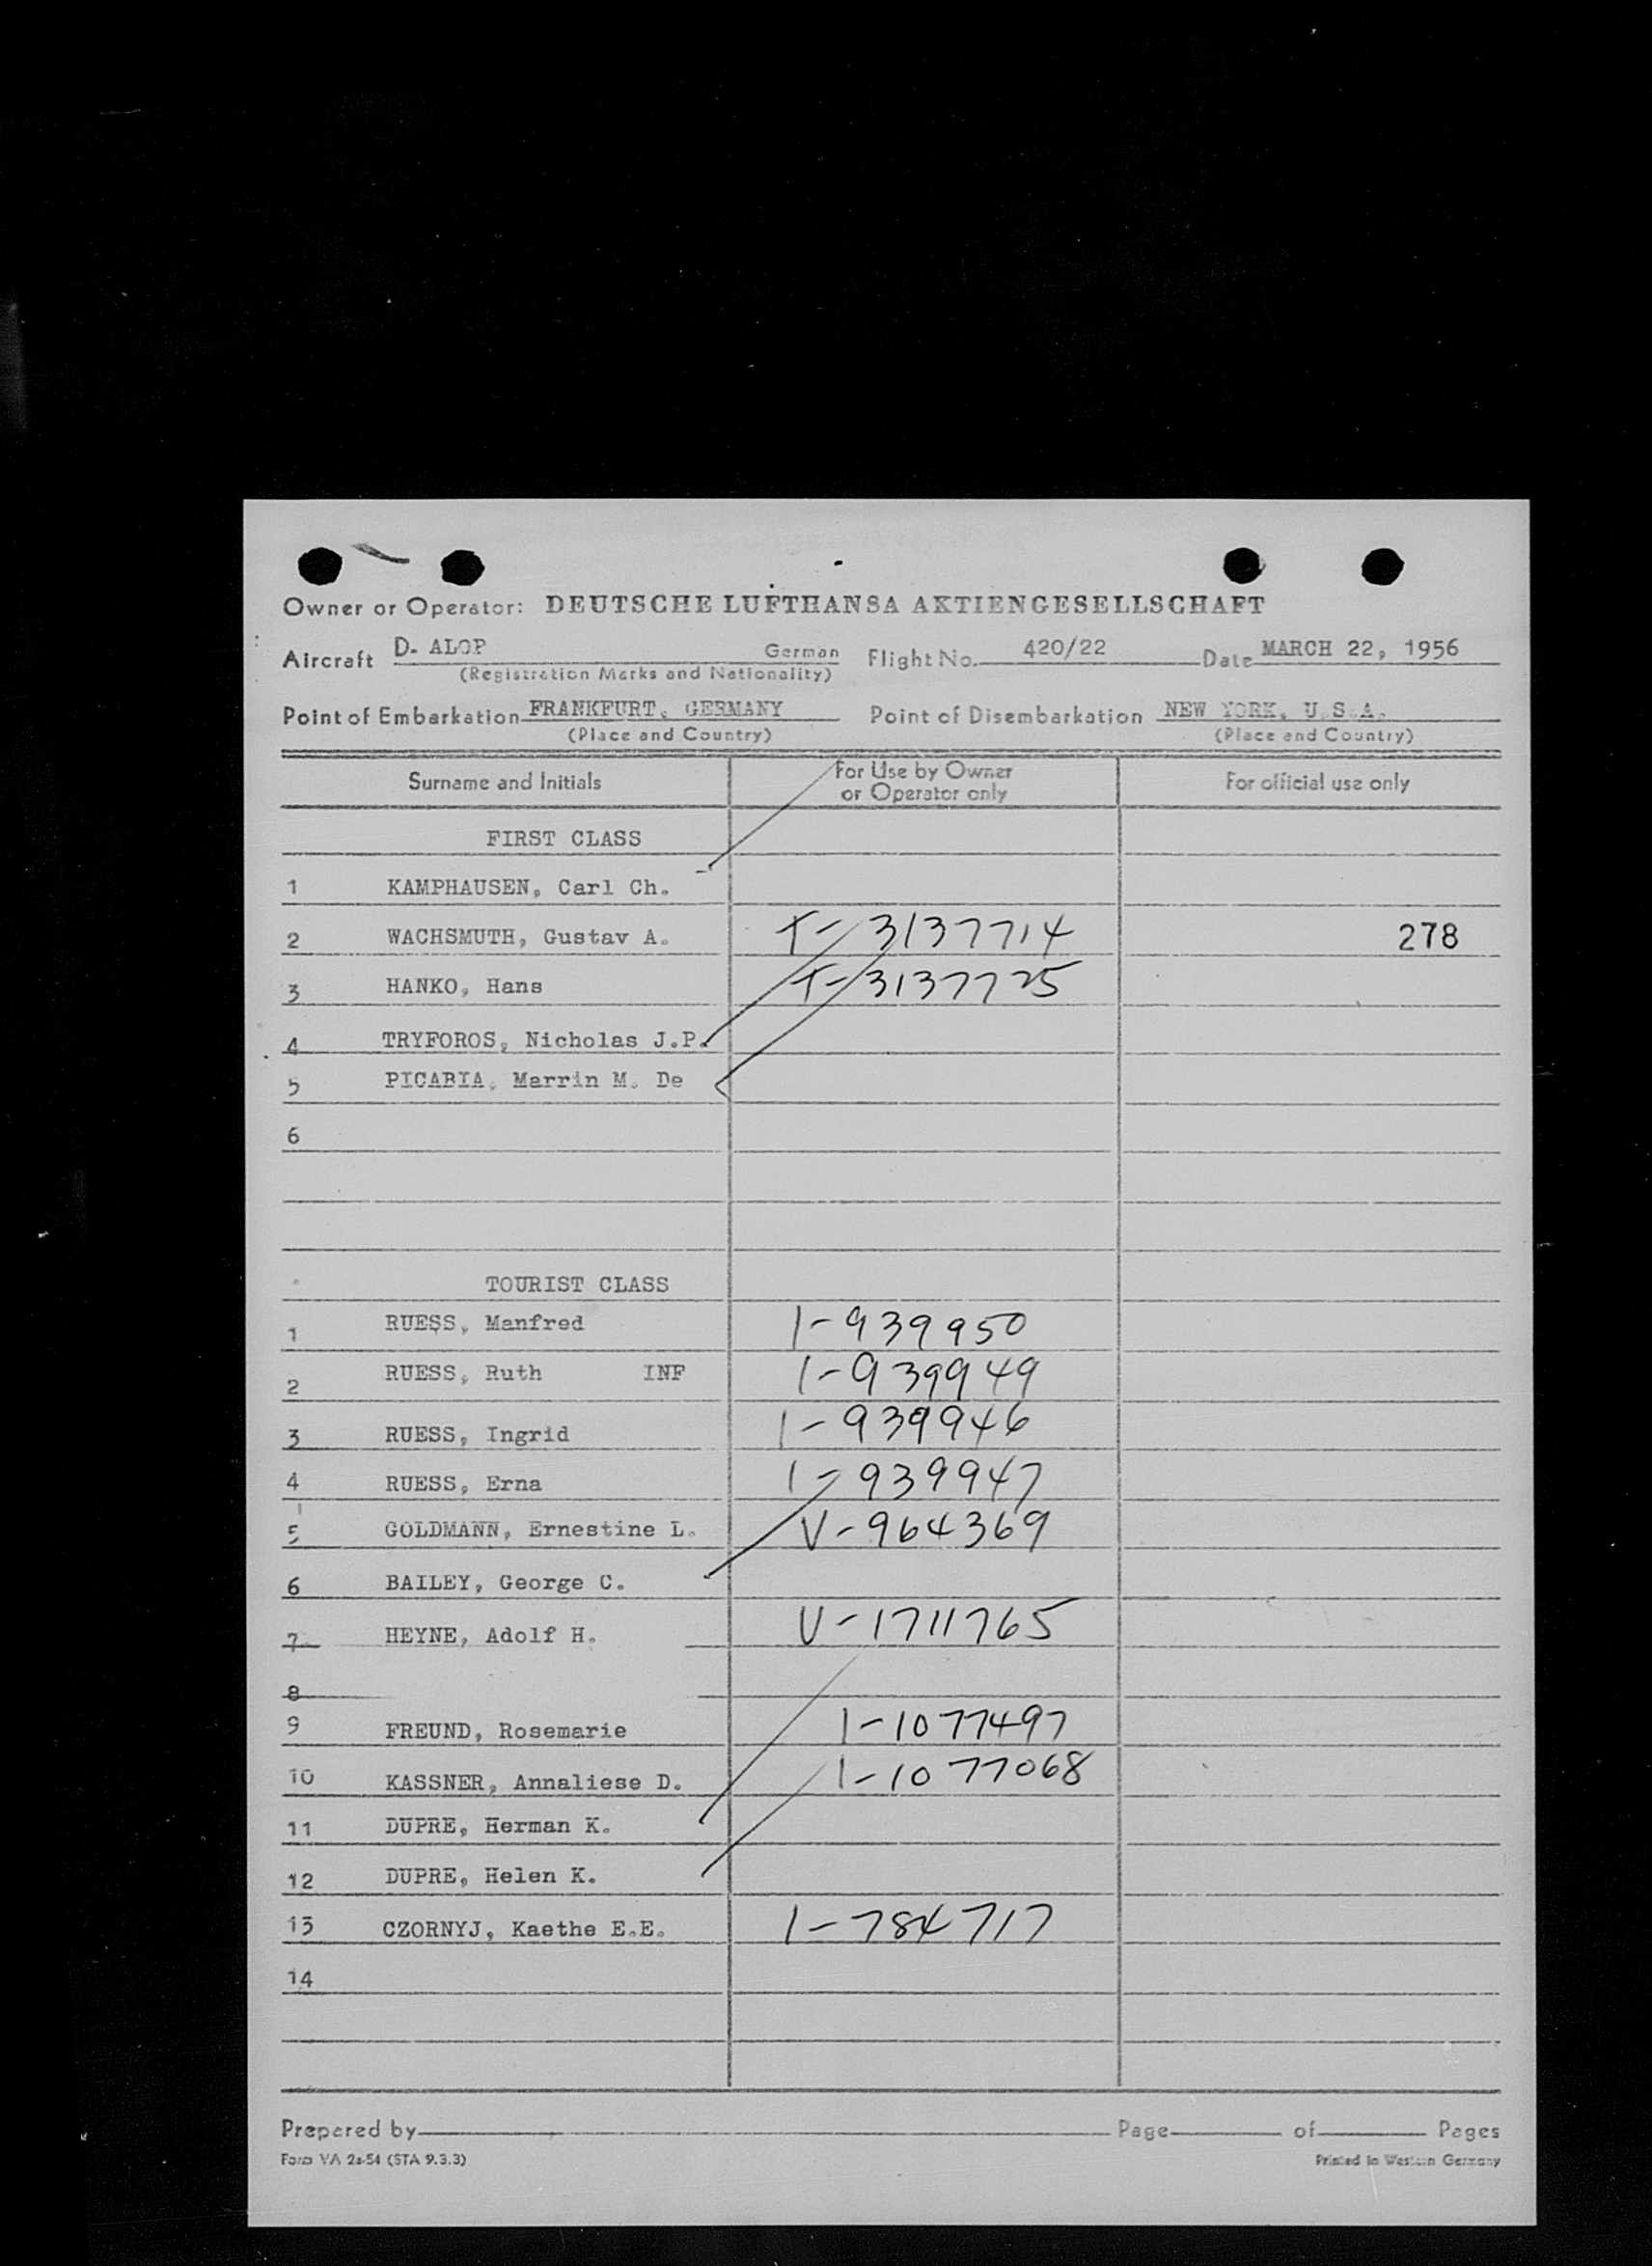 Owner or Operator: DEUTSCHE LUFTHANSA AKTIENGESELLSCHAFT
Aircraft D- ALOP German Flight No. 420/22 Date MARCH 22, 1956
(Registration Marks and Nationality)
Point of Embarkation FRANKFURT, GERMANY Point of Disembarkation NEW YORK, U.S.A.
(Place and Country) (Place and Country)
Surname and Initials For Use by Owner or Operator only For official use only
FIRST CLASS
1 KAMPHAUSEN, Carl Ch.
2 WACHSMUTH, Gustav A. T-3137714 278
3 HANKO, Hans T-3137725
4 TRYFOROS, Nicholas J.P.
5 PICABIA, Marrin M. De
6
TOURIST CLASS
1 RUESS, Manfred 1-939950
2 RUESS, Ruth INF 1-939949
3 RUESS, Ingrid 1-939946
4 RUESS, Erna 1-939947
5 GOLDMANN, Ernestine L. V-964369
6 BAILEY, George C.
7 HEYNE, Adolf H. V-1711765
8
9 FREUND, Rosemarie 1-1077497
10 KASSNER, Annaliese D. 1-1077068
11 DUPRE, Herman K.
12 DUPRE, Helen K.
13 CZORNYJ, Kaethe E.E. 1-784717
14
Prepared by Page of Pages
Form VA 2a-54 (STA 9.3.3) Printed in Western Germany